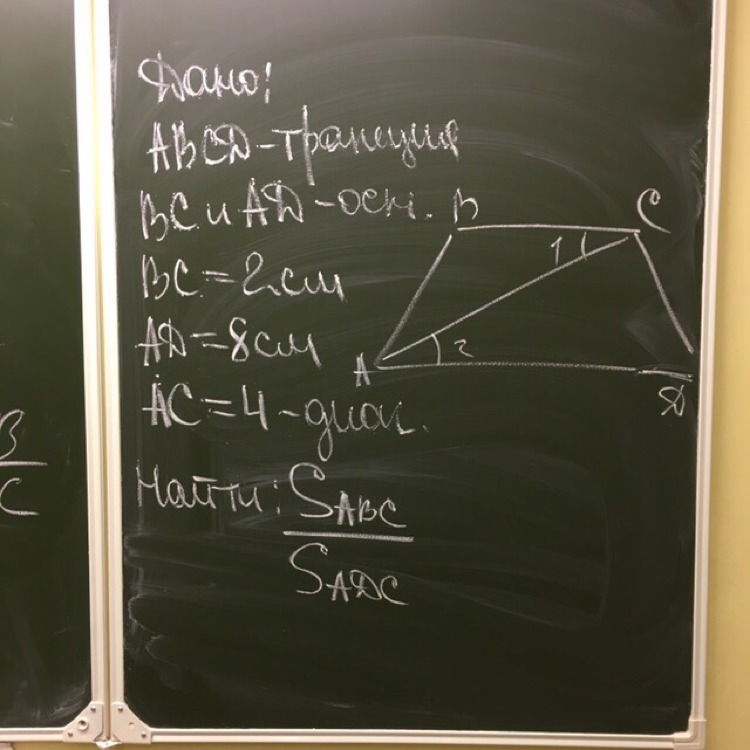 Дано:
ABCD - трапеция
BC и AD - осн.
BC = 2 см
AD = 8 см
AC = 4 - диаг.
Найти: S ABC
S ADC
B
C
1
2
A
D
B
C